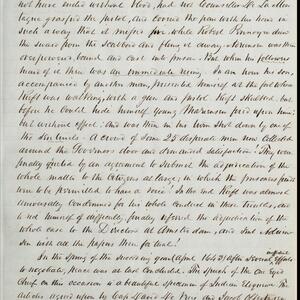 not have ended without blood, had not Counsellor De la
grasped the pistol, and covered the pan with his hand in
such a way that it missed fire while Robert Pennoyer drew
the sword from the scabbard and flung it away. Adriansen was then
overpowered, bound and cast into prison. But when his followers
heard of it there was an immediate rising. In an hour his son,
accompanied by another man, presented himself at the fort where
Kieft was walking, with a gun and pistol. Kieft skulked, but
before he could hide himself, young Adriansen fired upon him,
but without effect. He was then in his turn shot down by one of
the Sentinels. A crowd of some 25 desperate men now collected
around the Governors door and demanded satisfaction. They were
finally quieted by an agreement to submit the adjudication of the
whole matter to the Citizens at large, in which the prisoners friends
were to be permitted to have a voice. In the end Kieft was almost
universally condemned for his whole conduct in these troubles, and
to rid himself of difficulty, finally referred the adjudication of the
whole case to the Directors at Amsterdam, and sent Adrian
sen with all the papers there for trial!
In the Spring of the succeeding year (April 1643) after several ineffectual efforts
to negotiate, peace was at last concluded. The speech of the
Chief on this occasion is a beautiful specimen of Indian Eloquence.
articles agreed upon by Capt David De Vries and Jacob